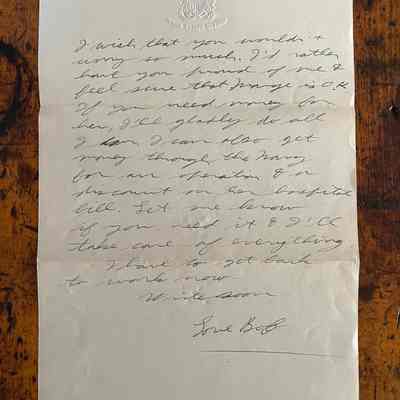 I wish that you wouldn't
worry so much. I'd rather
have you proud of me &
feel sure that Marge is O.K.
If you need money for
her, I'll gladly do all
I can. I can also get
money through the Navy
for an operation & a
discount on her hospital
bill. Let me know
if you need it & I'll
take care of everything.
I have to get back
to work now
Write soon
Love Bob